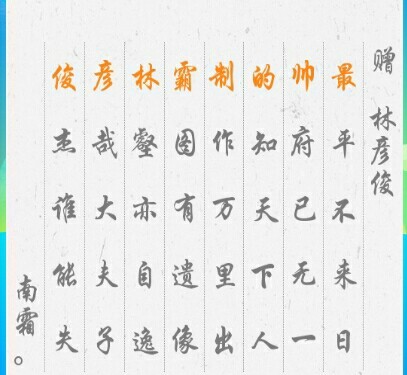 赠 林彦俊
最平不来日
帅府已无一
的知天下人
制作万里出
霸图有遗像
林壑亦自逸
彦哉大夫子
俊杰谁能失
南霜。